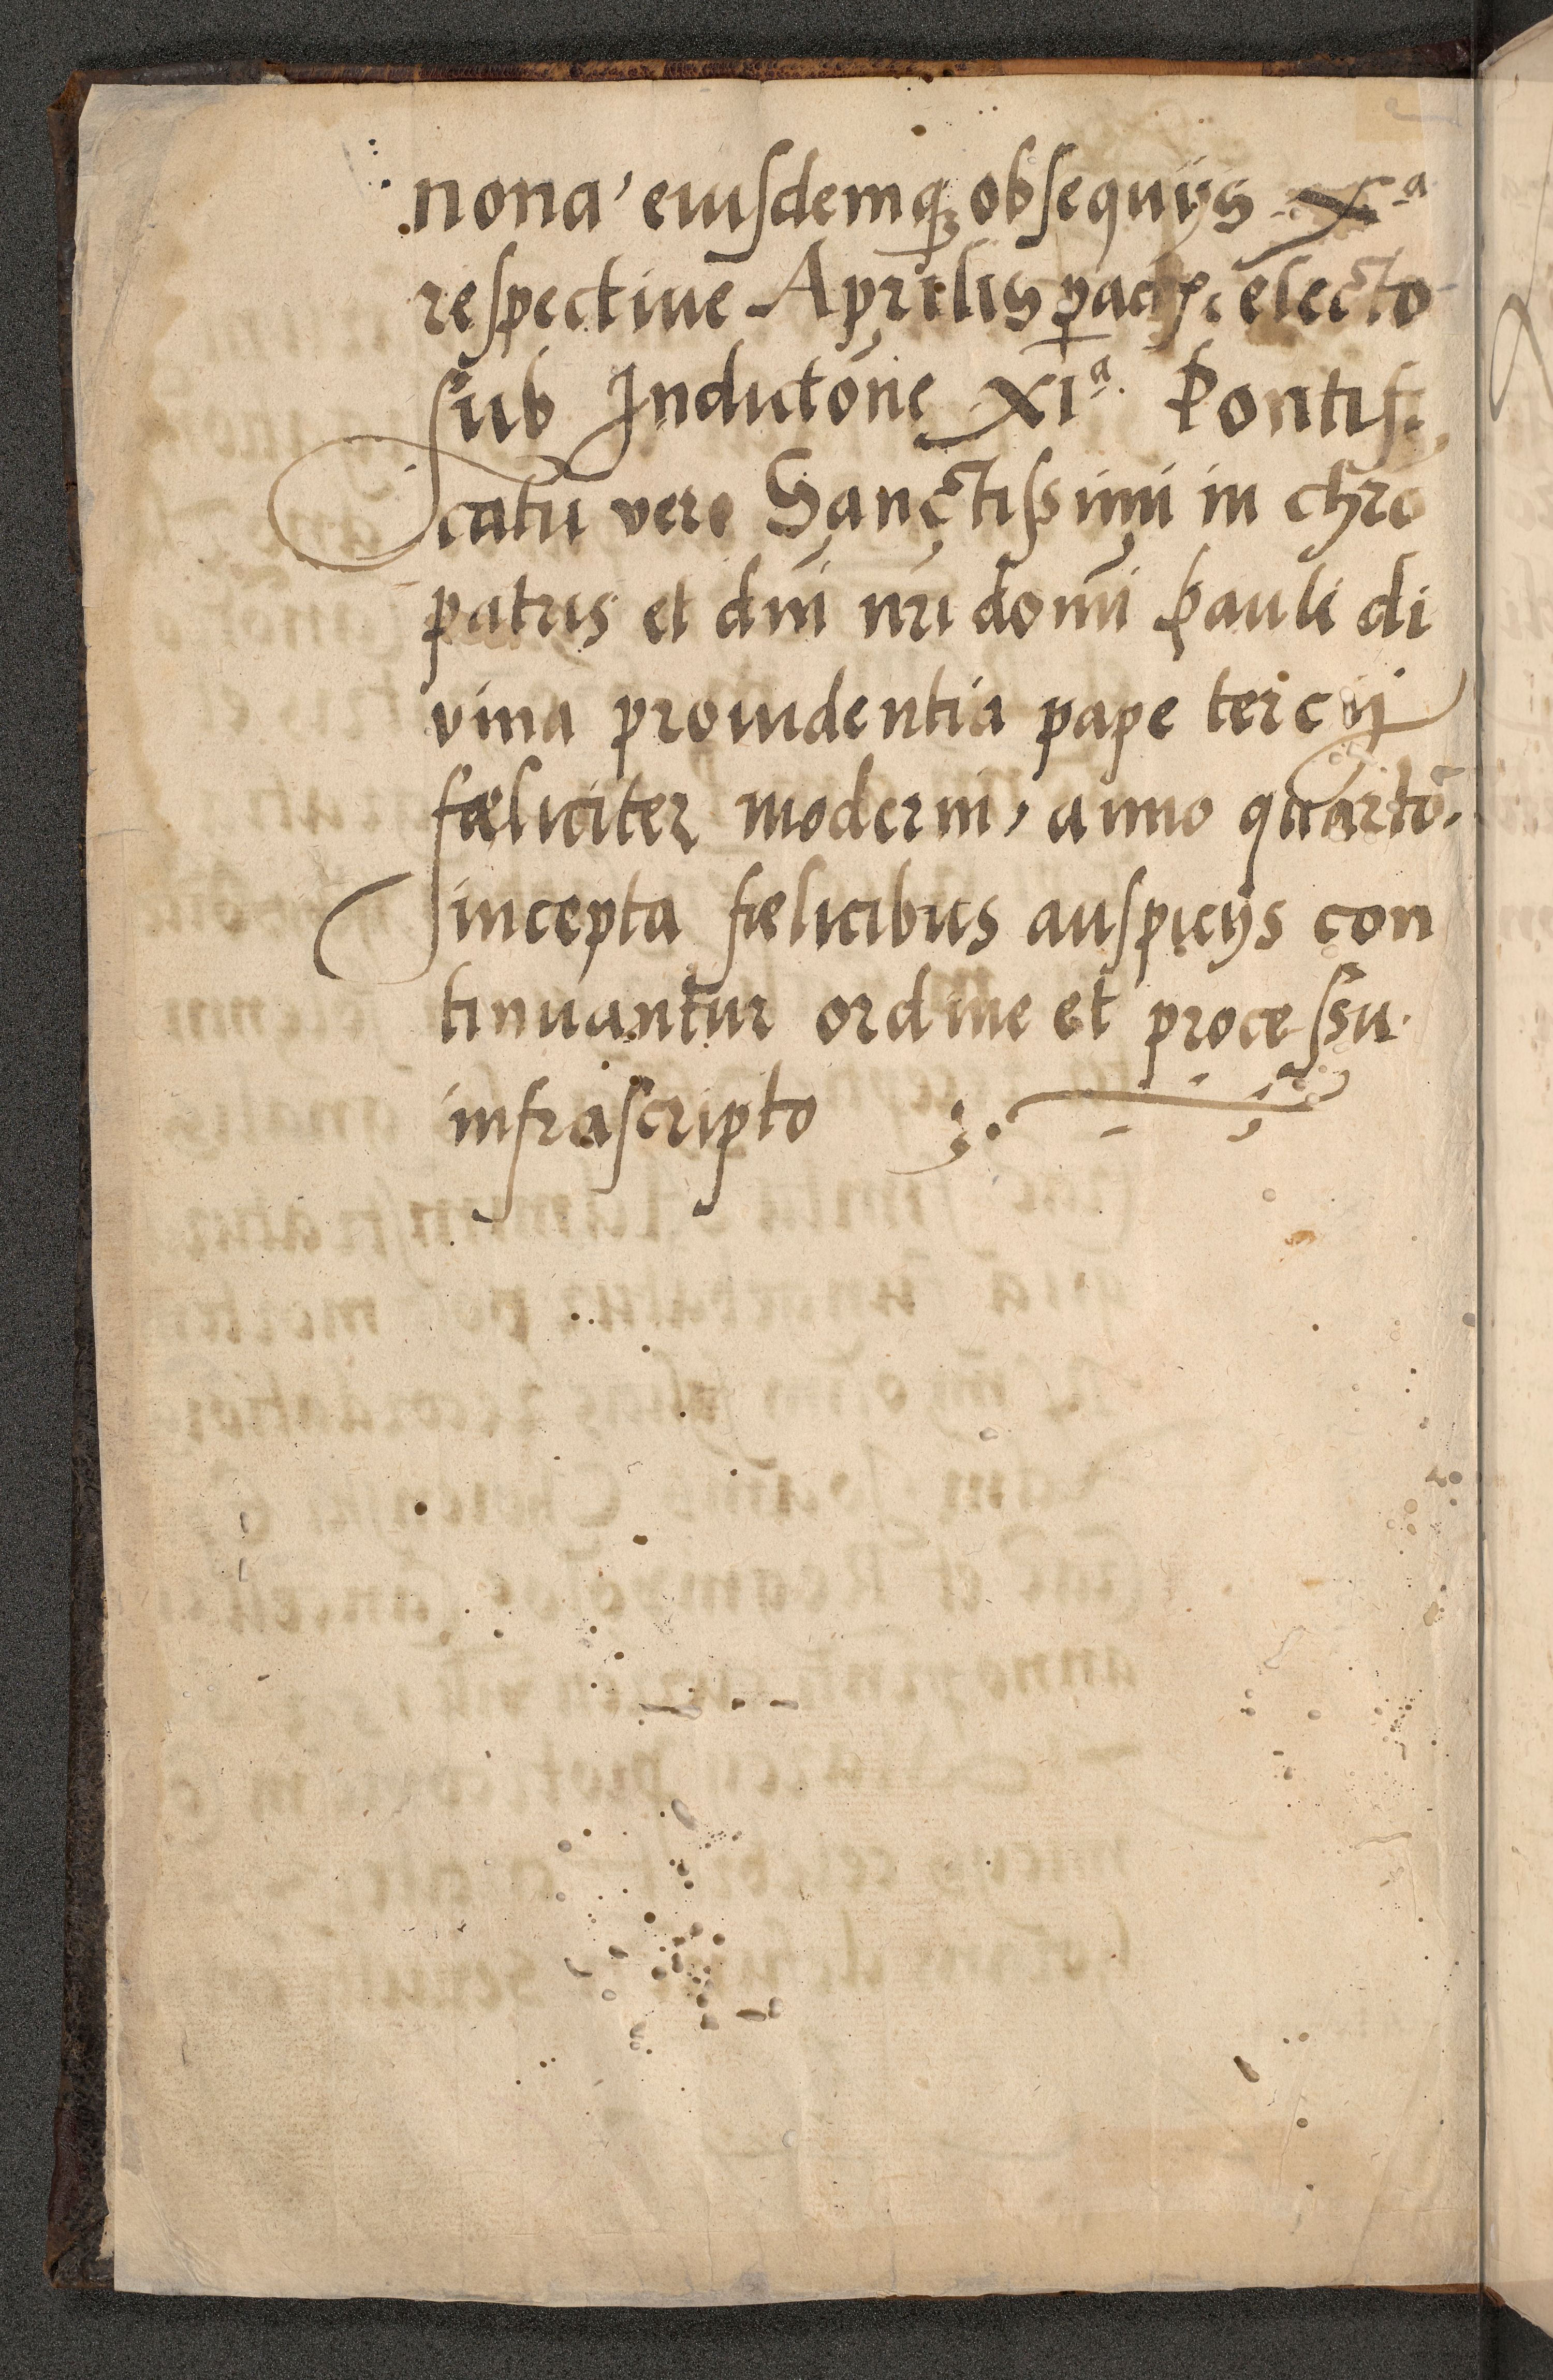 nona, eiusdemq; obsequijs Xª
respective Aprilis electo
sub Indictōne XIª. Pontifi
catu vero Sanctissimi in chro
patris et dnī nrī domī pauli di
vina prouidentia pape tercij
fæliciter moderni, anno quarto.
incepta fælicibus auspicijs con
tinuantur ordine et processu.
infrascripto